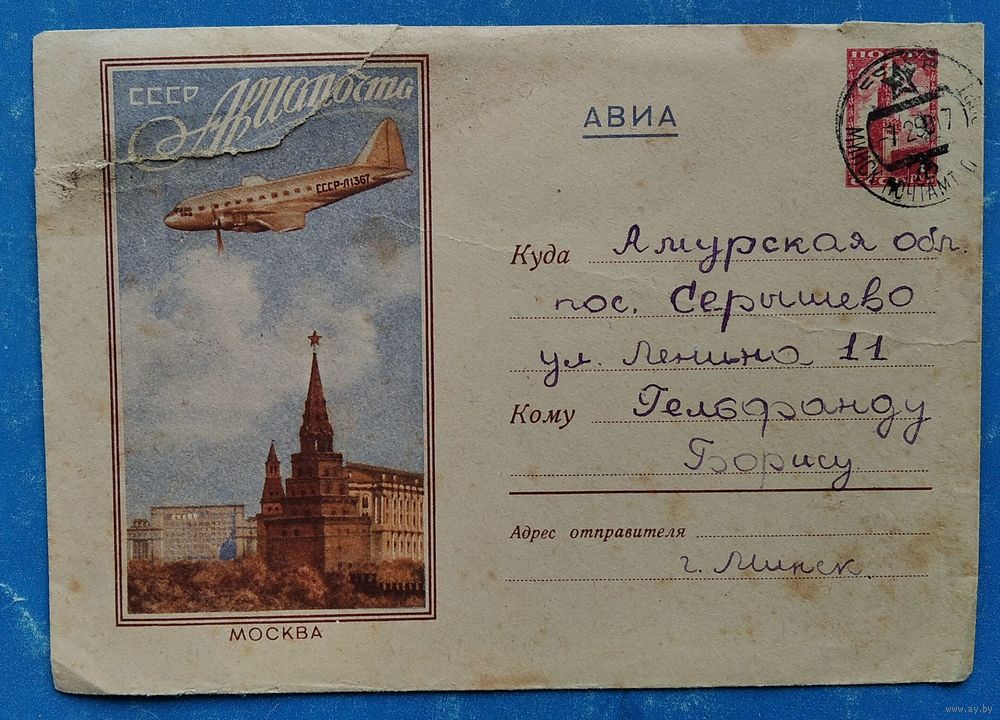 СССР
Авиапочта
СССР-Л1367
МОСКВА
АВИА
МИНСК ПОЧТАМТ
Куда Амурская обл.
пос. Серышево
ул. Ленина 11
Кому Гельфанду
Борису
Адрес отправителя
г. Минск.
www.ay.by